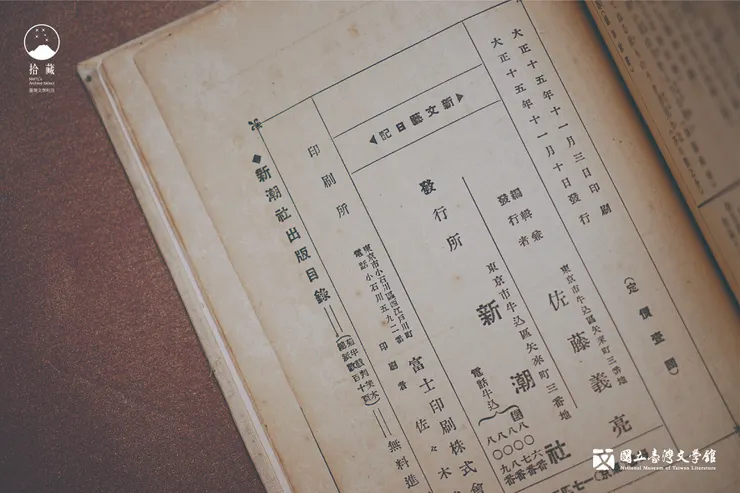 大正十五年十一月三日印刷
大正十五年十一月十日發行
(定價壹圓)
新文藝日記
編輯兼
發行者
東京市牛込區矢來町三番地
佐藤義亮
發行所
東京市牛込區矢來町三番地
新潮社
電話牛込
八〇八番
八〇七番
八〇六番
印刷所
東京市小石川區西江戶川町
電話小石川五九二番
富士印刷株式會
印刷者
佐々木
◆新潮社出版目錄
無料進
拾藏
臺灣文學物語
國立臺灣文學館
National Museum of Taiwan Literature